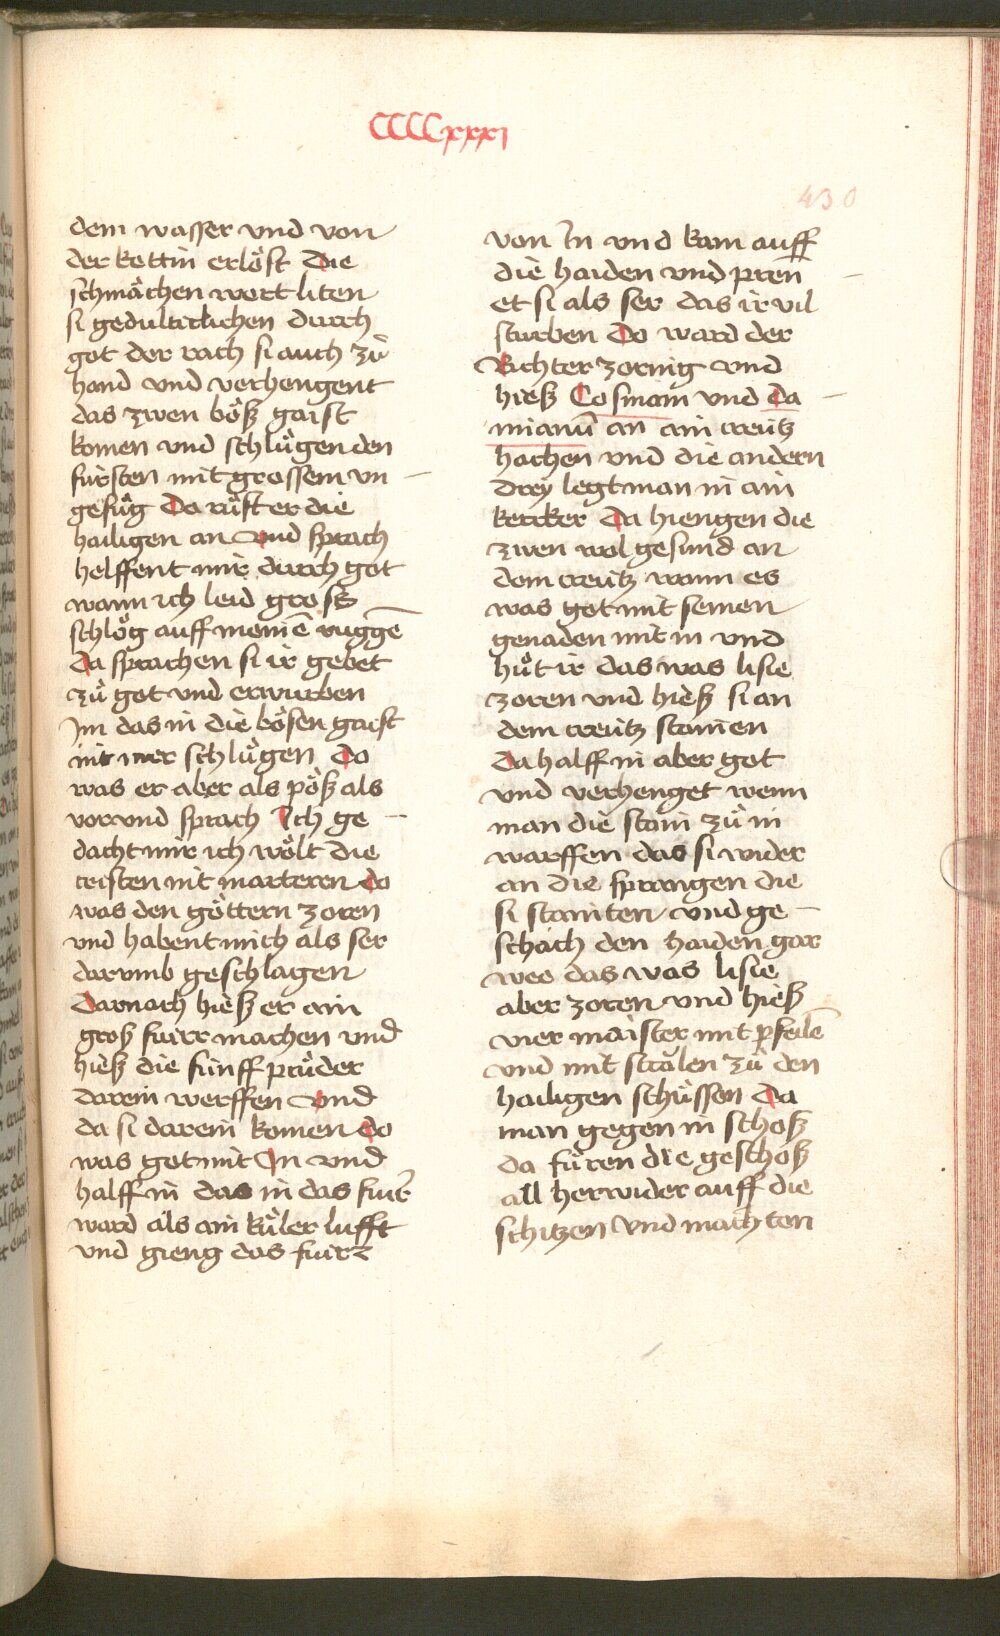 CCCCxxxj
430
dem wasser vnd von
der kettin erlöst Die
schmächen wort liten
si gedulticlichen durch
got der rach si auch zů
hand vnd verhengent
das zwen böß gaist
komen vnd schlůgen den
fürsten mit grossem vn
gefůg Da růft er die
hailigen an vnd sprach
helffent mir durch got
wann ich leid groß
schlög auff meinē rugge
Da sprachen si ir gebet
zů got vnd erwurben
Im das in die bösen gaist
nit mer schlůgen Do
was er aber als pöß als
vor vnd sprach Ich ge
dacht mir ich wölt die
cristen nit marteren do
was den göttern zoren
vnd habent mich als ser
darumb geschlagen
Darnach hieß er ain
groß fuirr machen vnd
hieß die fünff průder
darein werffen Vnd
da si darein komen Do
was got mit In vnd
halff in das in das fuir
ward als ain küler lufft
vnd gieng das fuirr
von In vnd kam auff
die haiden vnd pren̄
et si als ser das ir vil
sturben Do ward der
Richter zornig vnd
hieß Cosmam vnd Da
mianū an ain creütz
hachen vnd die andern
drey legt man in ain
kercker Da hiengen die
zwen wol gesund an
dem creütz wann es
was got mit seinen
genaden mit in vnd
hůt ir das was lisie
zoren vnd hieß si an
dem creütz stainen
Da halff in aber got
vnd verhenget wenn
man die stain zů in
warffen das si wider
an die sprangen die
si stainten vnd ge
schach den haiden gar
wee das was lisie
aber zoren vnd hieß
vier maister mit pfeilē
vnd mit stralen zů den
hailigen schüssen Da
man gegen in schoß
da fůren die geschoß
all herwider auff die
schitzen vnd machten